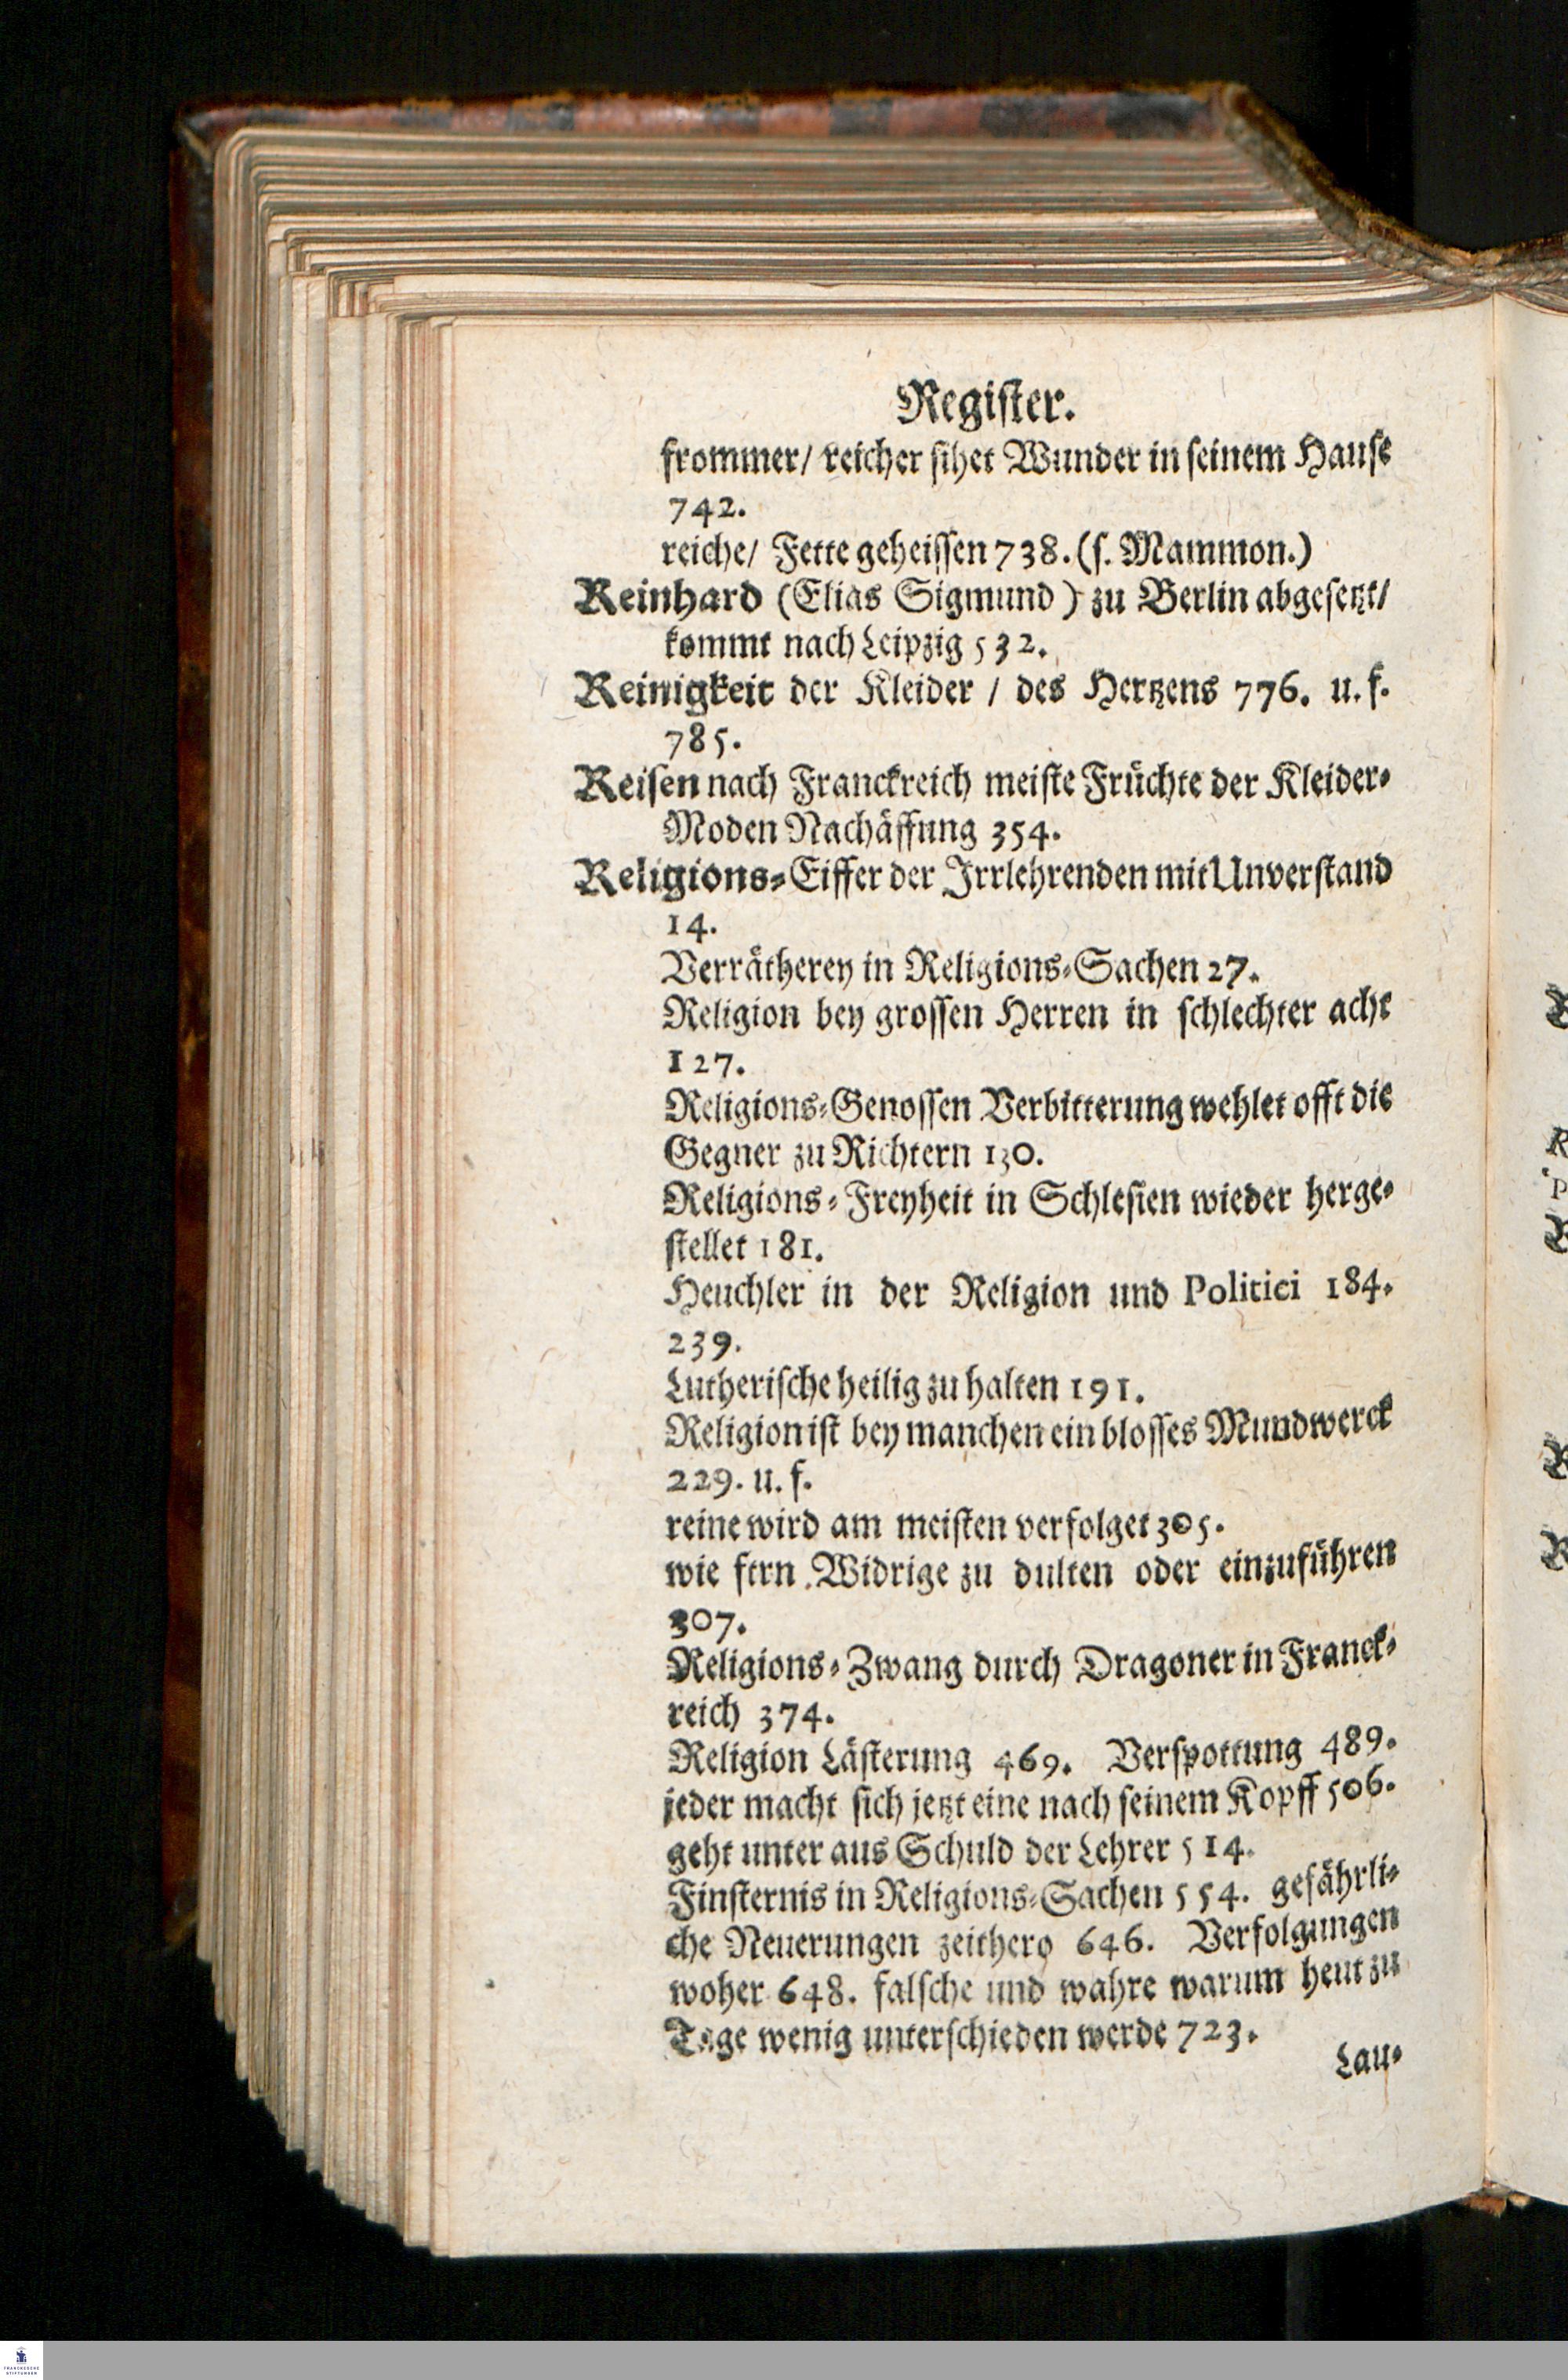 Register.
frommer/ reicher sihet Wunder in seinem Hause
742.
reiche/ Fette geheissen 738. (s. Mammon.)
Reinhard (Elias Sigmund) zu Berlin abgesetzt/
kommt nach Leipzig 532.
Reinigkeit der Kleider / des Hertzens 776. u. f.
785.
Reisen nach Franckreich meiste Früchte der Kleider-
Moden Nachäffung 354.
Religions-Eiffer der Irrlehrenden mit Unverstand
14.
Verrätherey in Religions-Sachen 27.
Religion bey grossen Herren in schlechter acht
127.
Religions-Genossen Verbitterung wehlet offt die
Gegner zu Richtern 130.
Religions-Freyheit in Schlesien wieder herge-
stellet 181.
Heuchler in der Religion und Politici 184.
239.
Lutherische heilig zu halten 191.
Religion ist bey manchen ein blosses Mundwerck
229. u. f.
reine wird am meisten verfolget 305.
wie fern Widrige zu dulten oder einzuführen
307.
Religions-Zwang durch Dragoner in Franck-
reich 374.
Religion Lästerung 469. Verspottung 489.
jeder macht sich jetzt eine nach seinem Kopff 506.
geht unter aus Schuld der Lehrer 514.
Finsternis in Religions-Sachen 554. gefährli-
che Neuerungen zeithero 646. Verfolgungen
woher 648. falsche und wahre warum heut zu
Tage wenig unterschieden werde 723.
Lau-
FRANCKESCHE
STIFTUNGEN